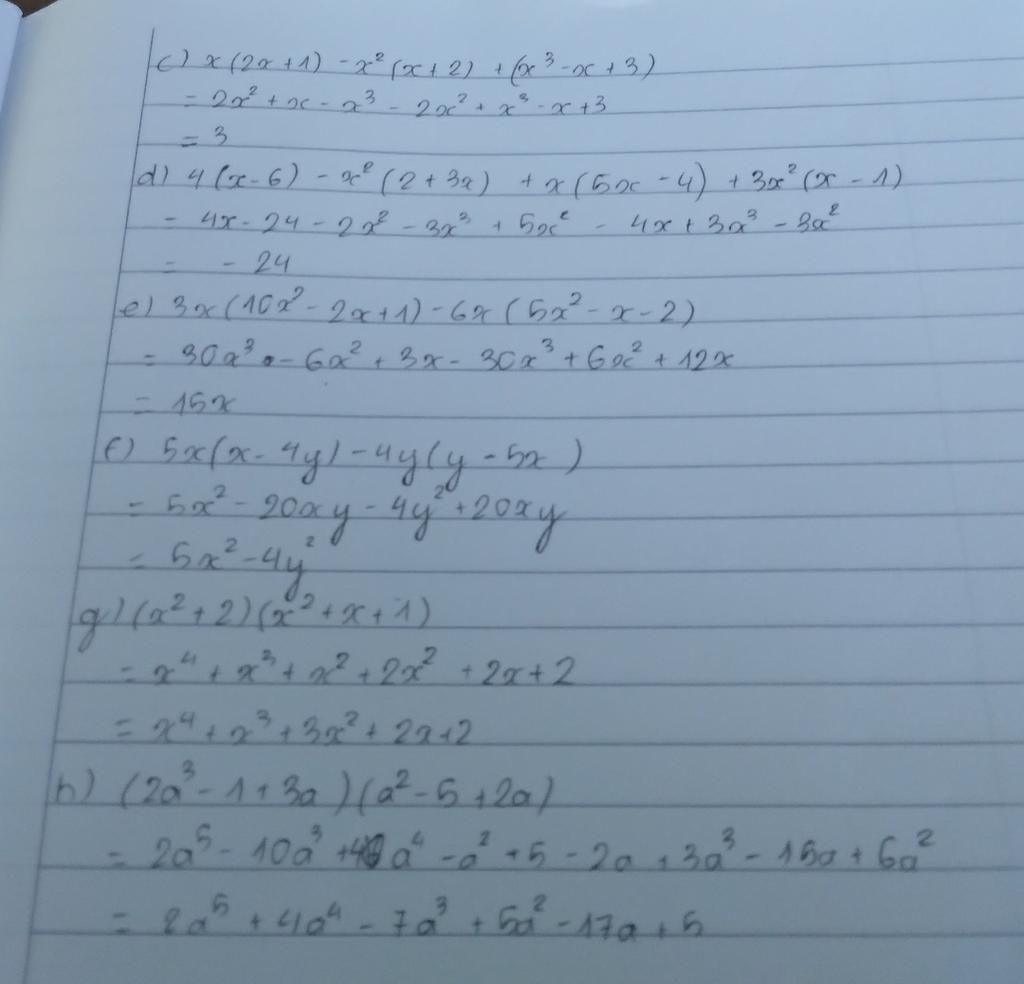 c) x(2x+1) - x²(x+2) + (x³-x+3)
= 2x² + x - x³ - 2x² + x³ - x + 3
= 3
d) 4(x-6) - x²(2+3x) + x(5x-4) + 3x²(x-1)
= 4x - 24 - 2x² - 3x³ + 5x² - 4x + 3x³ - 3x²
= - 24
e) 3x(10x² - 2x+1) - 6x(5x² - x - 2)
= 30x³ - 6x² + 3x - 30x³ + 6x² + 12x
= 15x
f) 5x(x - 4y) - 4y(y - 5x)
= 5x² - 20xy - 4y² + 20xy
= 5x² - 4y²
g) (x²+2)(x²+x+1)
= x⁴ + x³ + x² + 2x² + 2x + 2
= x⁴ + x³ + 3x² + 2x + 2
h) (2a³ - 1 + 3a)(a² - 5 + 2a)
= 2a⁵ - 10a³ + 4a⁴ - a² + 5 - 2a + 3a³ - 15a + 6a²
= 2a⁵ + 4a⁴ - 7a³ + 5a² - 17a + 5